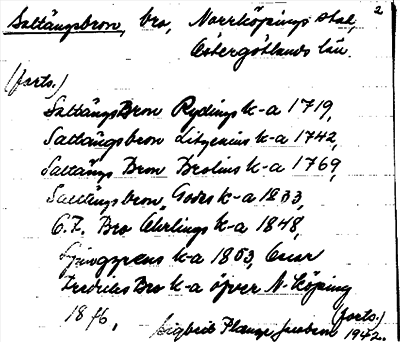 Saltängsbron, bro, Norrköpings stad, 2
Östergötlands län.
(forts.)
Saltängs Bron Rydings k-a 1719,
Saltängsbron Litzenius k-a 1742,
Saltängs Bron Brolins k-a 1769,
Saltängsbron, Godes k-a 1833,
C.F. Bro Ahrlings k-a 1848,
k-a 1853, Oscar
Fredriks Bro k-a öfver N-köping
18 (forts.)
1942.